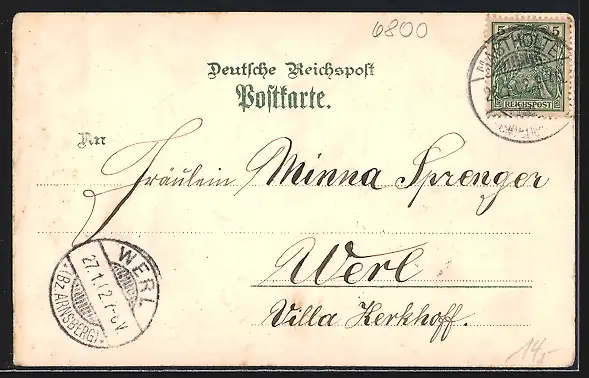 6800
5 5
REICHSPOST
Deutsche Reichspost
Postkarte.
An
Fräulein Minna Sprenger
Werl
Villa Kerkhoff.
WERL
27.1.02.7-8V.
(BZ.ARNSBERG)
14,-